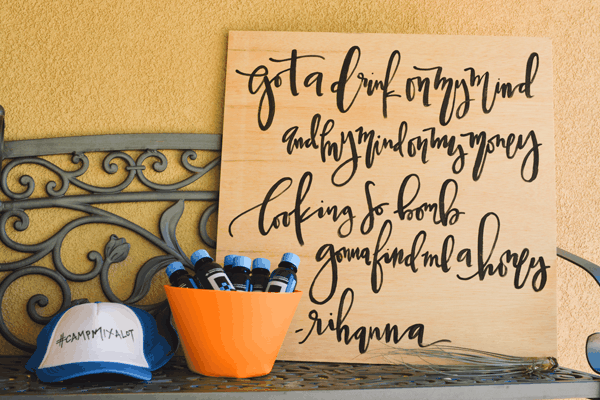 got a drink on my mind
and my mind on my money
looking so bomb
gonna find me a honey
-rihanna
#CAMPMIXALOT